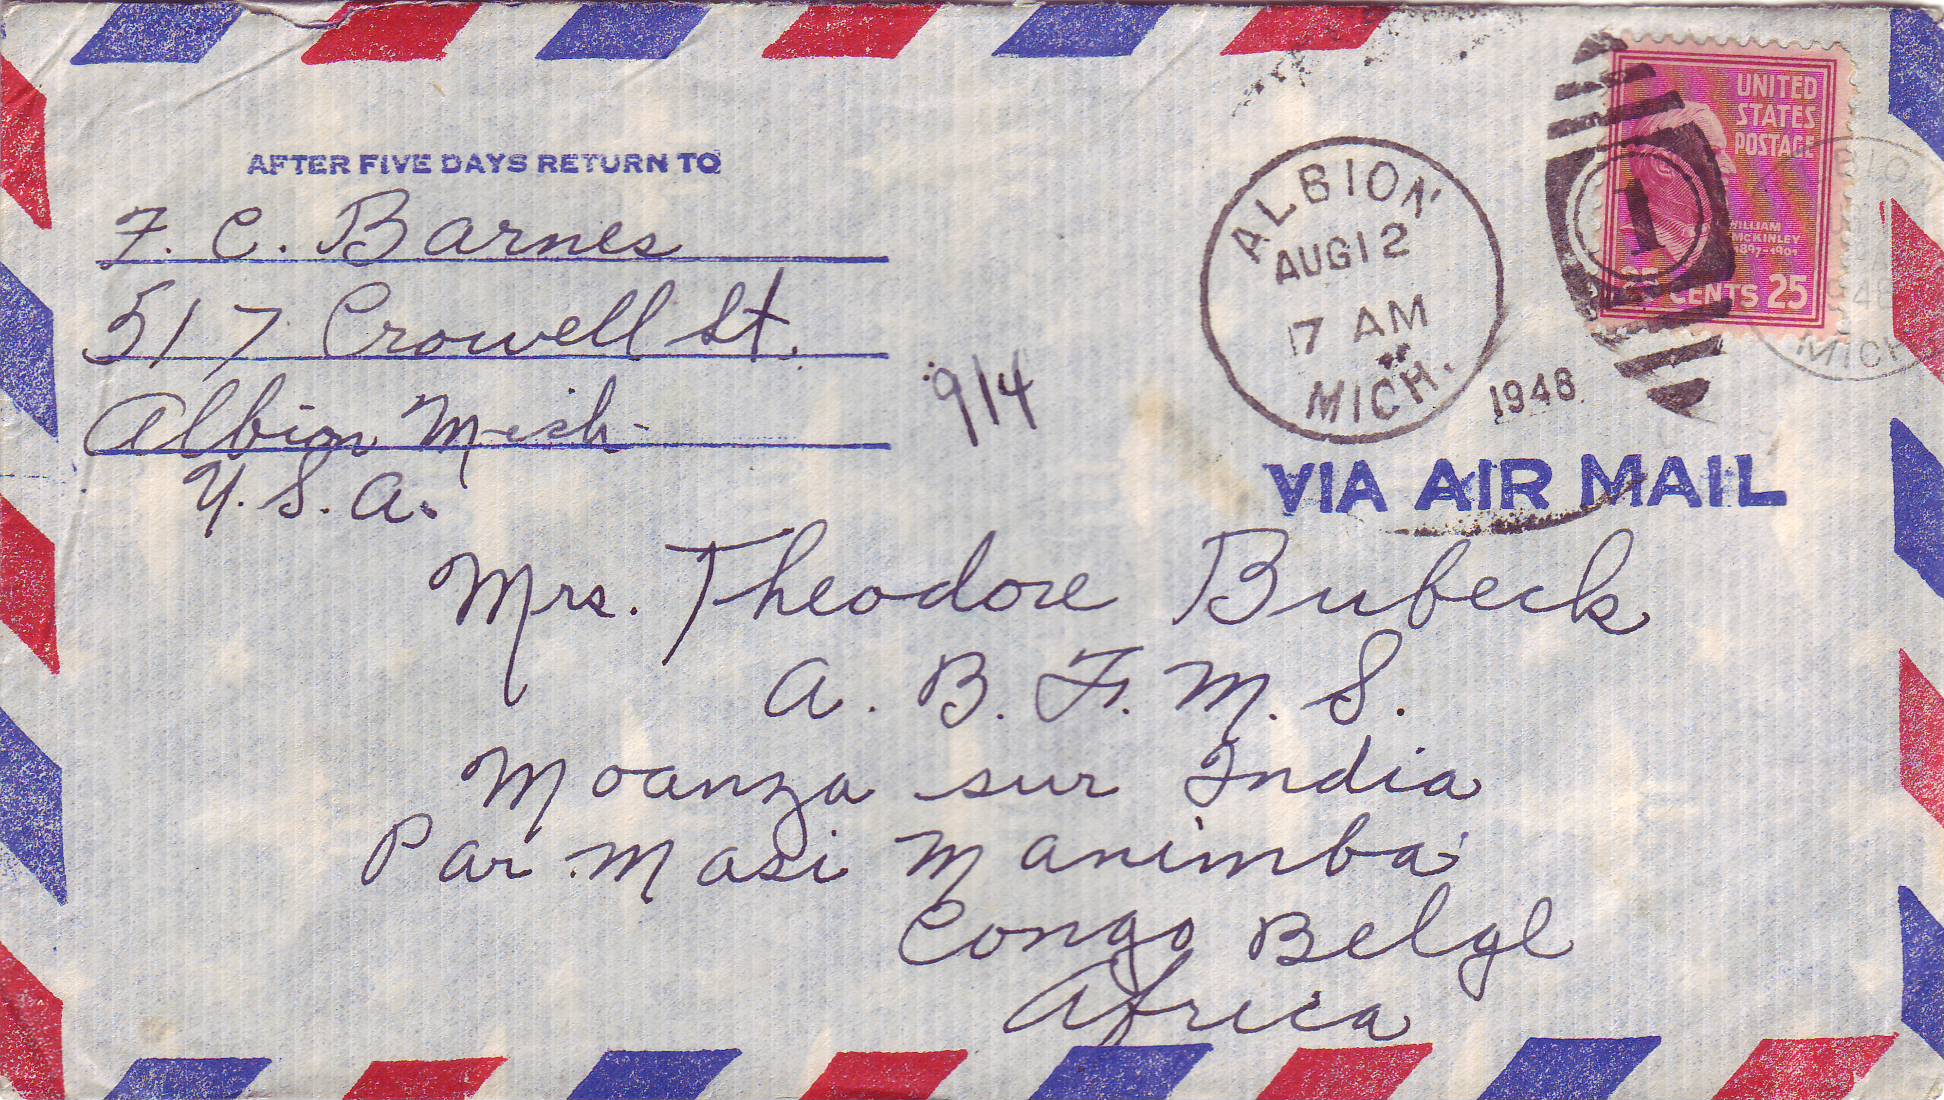 AFTER FIVE DAYS RETURN TO
F. C. Barnes
517 Crowell St.
Albion Mich
U.S.A.
914
ALBION
AUG 12
7 AM
MICH.
1948
1
UNITED
STATES
POSTAGE
WILLIAM
McKINLEY
1897-1901
25 CENTS 25
MICH
VIA AIR MAIL
Mrs. Theodore Bubeck
A. B. F. M. S.
Moanza sur India
Par Masi Manimba
Congo Belge
Africa